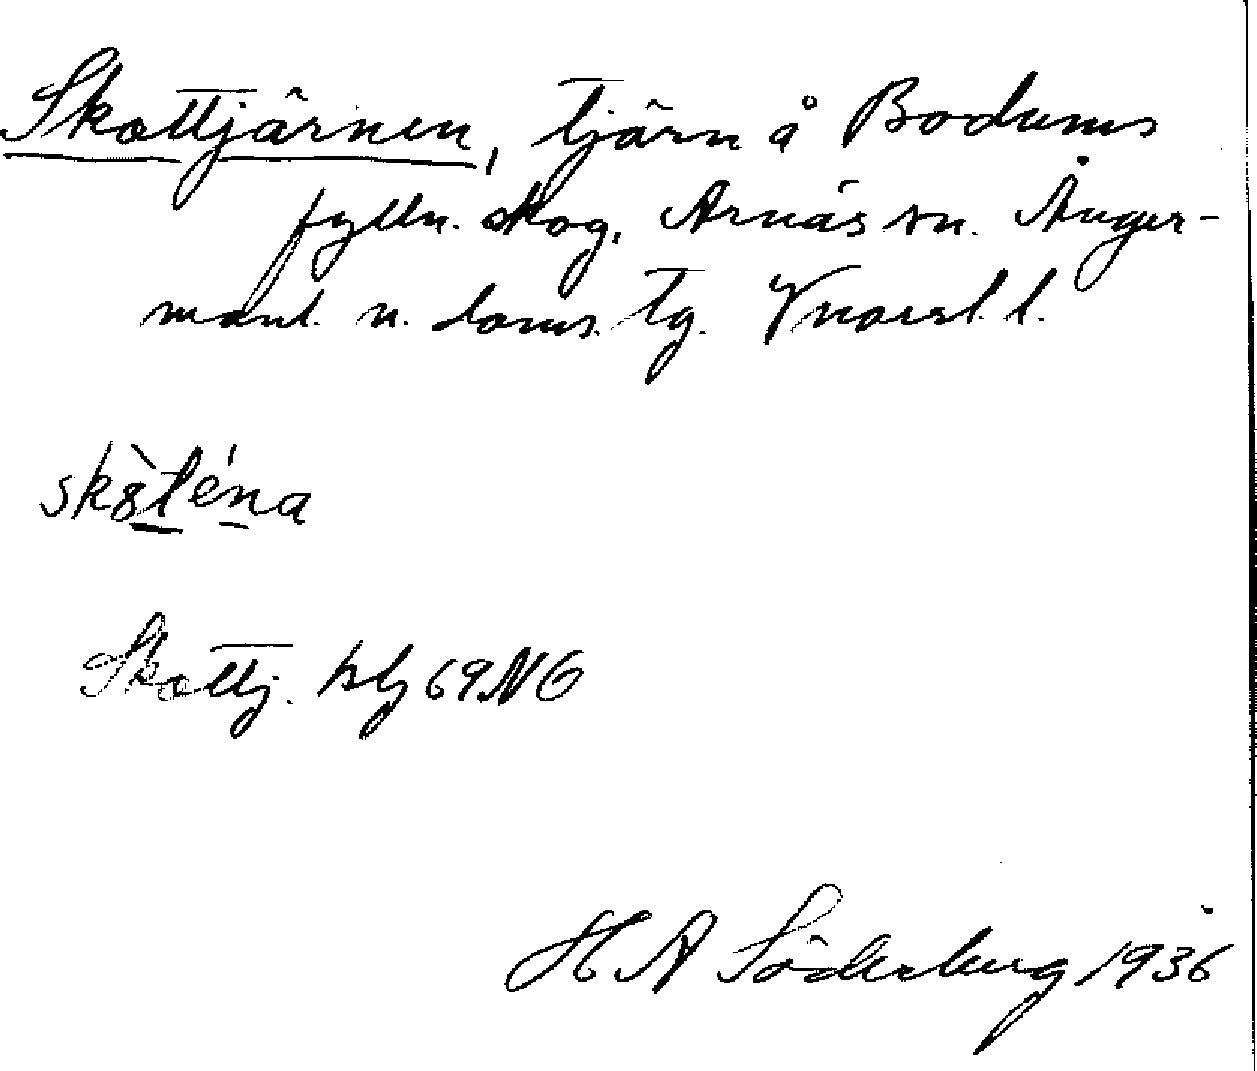 Skottjärnen, tjärn å Bodums
fylln. skog, Arnäs sn. Ånger-
manl. n. doms. tg. Vnorrl. l.
sk8̀téna
Skottj. blg 69NG
H A Söderberg 1936